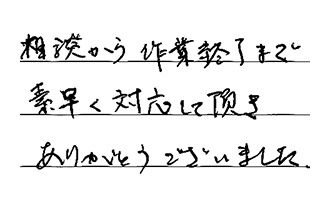 相談から作業終了まで
素早く対応して頂き
ありがとうございました。